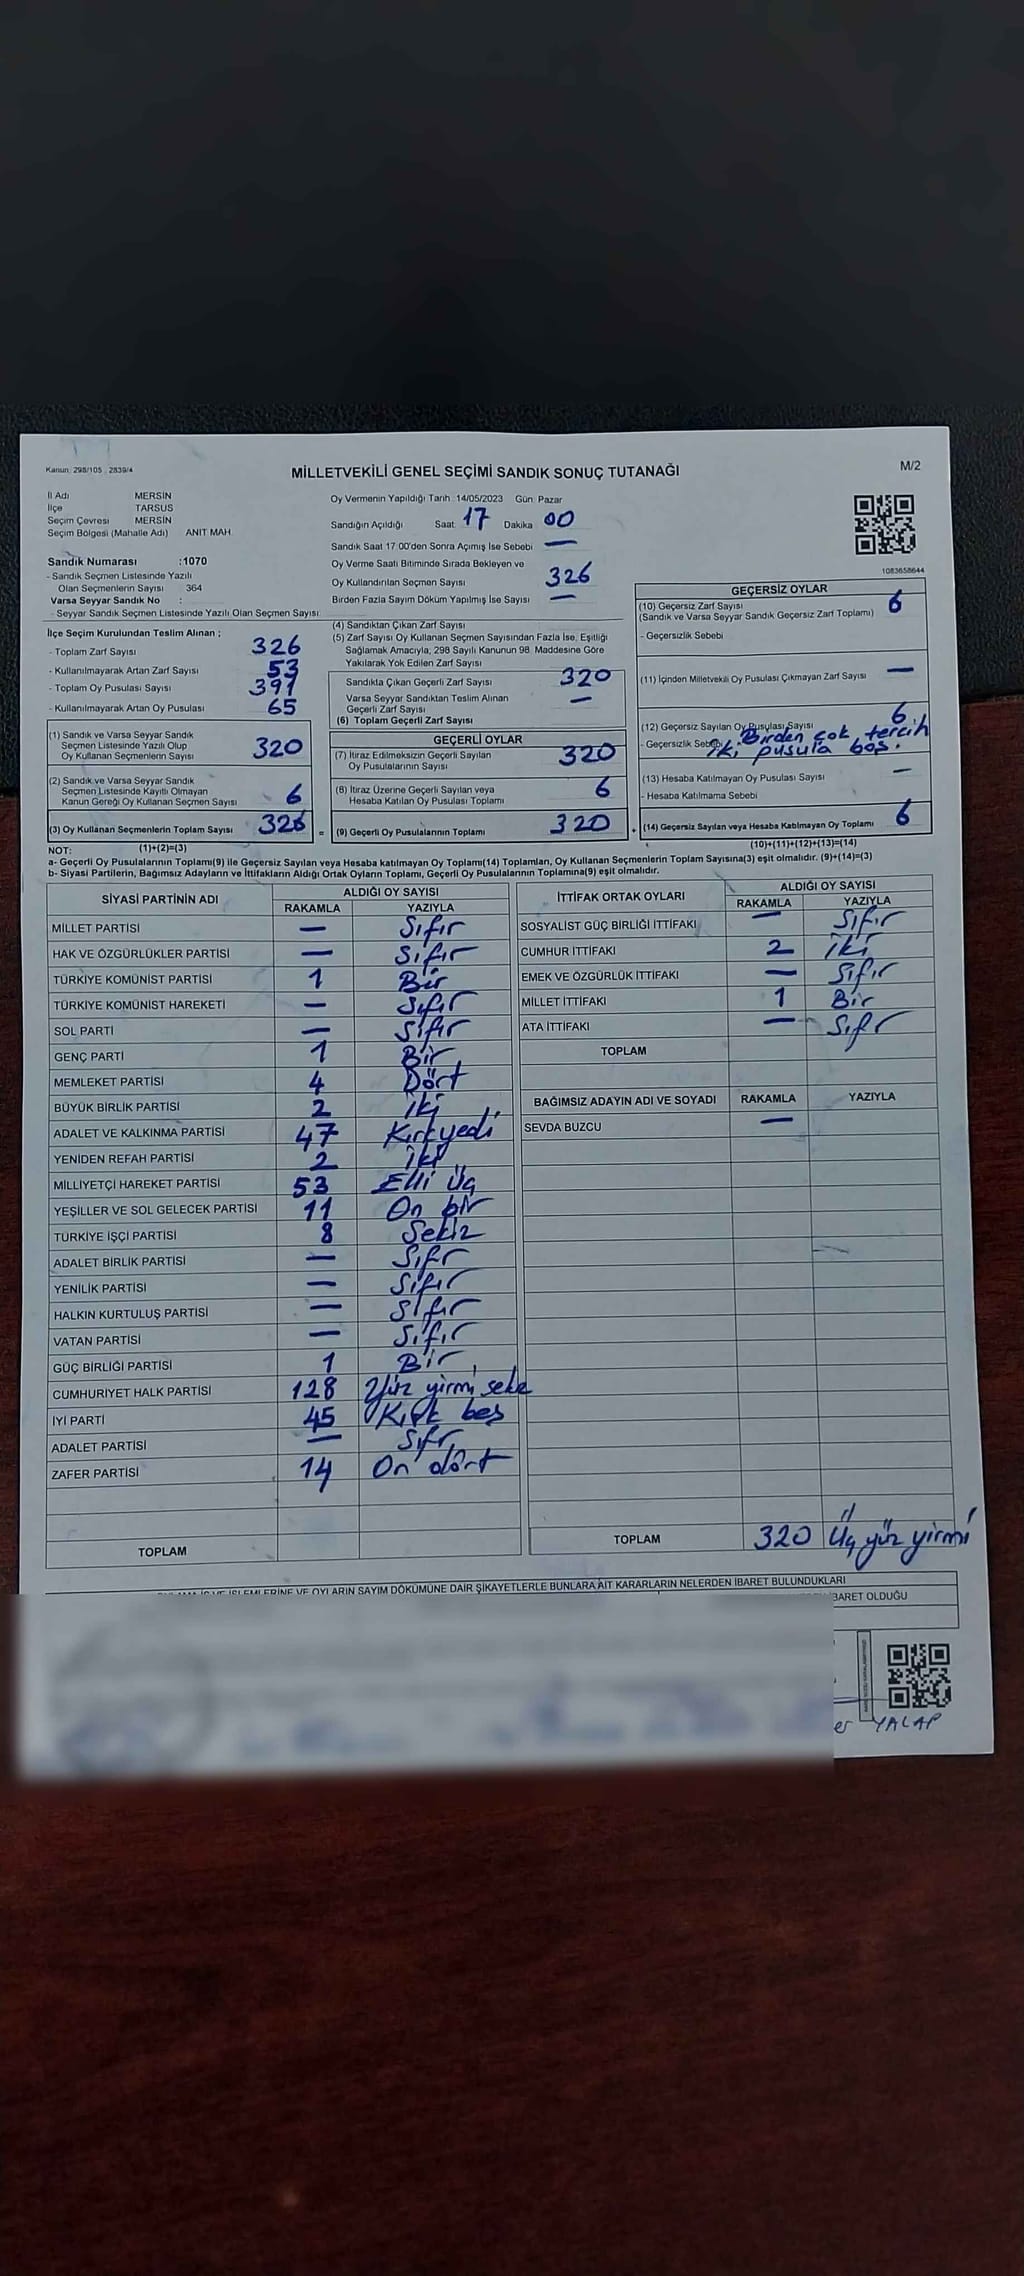 Kanun: 298/105 , 2839/4
MİLLETVEKİLİ GENEL SEÇİMİ SANDIK SONUÇ TUTANAĞI
M/2
İl Adı MERSİN
İlçe TARSUS
Seçim Çevresi MERSİN
Seçim Bölgesi (Mahalle Adı) ANIT MAH.
Sandık Numarası :1070
- Sandık Seçmen Listesinde Yazılı
Olan Seçmenlerin Sayısı 364
Varsa Seyyar Sandık No :
- Seyyar Sandık Seçmen Listesinde Yazılı Olan Seçmen Sayısı:
Oy Vermenin Yapıldığı Tarih :14/05/2023 Gün: Pazar
Sandığın Açıldığı Saat: 17 Dakika 00
Sandık Saat 17:00'den Sonra Açımış İse Sebebi —
Oy Verme Saati Bitiminde Sırada Bekleyen ve
Oy Kullandırılan Seçmen Sayısı 326
Birden Fazla Sayım Döküm Yapılmış İse Sayısı —
1083658644
İlçe Seçim Kurulundan Teslim Alınan ;
- Toplam Zarf Sayısı 326
- Kullanılmayarak Artan Zarf Sayısı 53
- Toplam Oy Pusulası Sayısı 391
- Kullanılmayarak Artan Oy Pusulası 65
(1) Sandık ve Varsa Seyyar Sandık
Seçmen Listesinde Yazılı Olup
Oy Kullanan Seçmenlerin Sayısı 320
(2) Sandık ve Varsa Seyyar Sandık
Seçmen Listesinde Kayıtlı Olmayan
Kanun Gereği Oy Kullanan Seçmen Sayısı 6
(3) Oy Kullanan Seçmenlerin Toplam Sayısı 326 =
(4) Sandıktan Çıkan Zarf Sayısı
(5) Zarf Sayısı Oy Kullanan Seçmen Sayısından Fazla İse, Eşitliği
Sağlamak Amacıyla, 298 Sayılı Kanunun 98. Maddesine Göre
Yakılarak Yok Edilen Zarf Sayısı
Sandıkta Çıkan Geçerli Zarf Sayısı 320
Varsa Seyyar Sandıktan Teslim Alınan
Geçerli Zarf Sayısı —
(6) Toplam Geçerli Zarf Sayısı
GEÇERLİ OYLAR
(7) İtiraz Edilmeksizin Geçerli Sayılan
Oy Pusulalarının Sayısı 320
(8) İtiraz Üzerine Geçerli Sayılan veya
Hesaba Katılan Oy Pusulası Toplamı 6
(9) Geçerli Oy Pusulalarının Toplamı 320 +
GEÇERSİZ OYLAR
(10) Geçersiz Zarf Sayısı 6
(Sandık ve Varsa Seyyar Sandık Geçersiz Zarf Toplamı)
- Geçersizlik Sebebi
(11) İçinden Milletvekili Oy Pusulası Çıkmayan Zarf Sayısı —
(12) Geçersiz Sayılan Oy Pusulası Sayısı 6
- Geçersizlik Sebebi Birden çok tercih
iki pusula boş.
(13) Hesaba Katılmayan Oy Pusulası Sayısı —
- Hesaba Katılmama Sebebi
(14) Geçersiz Sayılan veya Hesaba Katılmayan Oy Toplamı 6
NOT: (1)+(2)=(3) (10)+(11)+(12)+(13)=(14)
a- Geçerli Oy Pusulalarının Toplamı(9) ile Geçersiz Sayılan veya Hesaba katılmayan Oy Toplam(14) Toplamları, Oy Kullanan Seçmenlerin Toplam Sayısına(3) eşit olmalıdır. (9)+(14)=(3)
b- Siyasi Partilerin, Bağımsız Adayların ve İttifakların Aldığı Ortak Oyların Toplamı, Geçerli Oy Pusulalarının Toplamına(9) eşit olmalıdır.
SİYASİ PARTİNİN ADI ALDIĞI OY SAYISI
RAKAMLA YAZIYLA
MİLLET PARTİSİ — Sıfır
HAK VE ÖZGÜRLÜKLER PARTİSİ — Sıfır
TÜRKİYE KOMÜNİST PARTİSİ 1 Bir
TÜRKİYE KOMÜNİST HAREKETİ — Sıfır
SOL PARTİ — Sıfır
GENÇ PARTİ 1 Bir
MEMLEKET PARTİSİ 4 Dört
BÜYÜK BİRLİK PARTİSİ 2 İki
ADALET VE KALKINMA PARTİSİ 47 Kırkyedi
YENİDEN REFAH PARTİSİ 2 İki
MİLLİYETÇİ HAREKET PARTİSİ 53 Elli üç
YEŞİLLER VE SOL GELECEK PARTİSİ 11 On bir
TÜRKİYE İŞÇİ PARTİSİ 8 Sekiz
ADALET BİRLİK PARTİSİ — Sıfr
YENİLİK PARTİSİ — Sıfır
HALKIN KURTULUŞ PARTİSİ — Sıfır
VATAN PARTİSİ — Sıfır
GÜÇ BİRLİĞİ PARTİSİ 1 Bir
CUMHURİYET HALK PARTİSİ 128 Yüz yirmi seke
İYİ PARTİ 45 Kırk beş
ADALET PARTİSİ — Sıfr
ZAFER PARTİSİ 14 On dört
TOPLAM
İTTİFAK ORTAK OYLARI ALDIĞI OY SAYISI
RAKAMLA YAZIYLA
SOSYALİST GÜÇ BİRLİĞİ İTTİFAKI — Sıfır
CUMHUR İTTİFAKI 2 İki
EMEK VE ÖZGÜRLÜK İTTİFAKI — Sıfır
MİLLET İTTİFAKI 1 Bir
ATA İTTİFAKI — Sıfr
TOPLAM
BAĞIMSIZ ADAYIN ADI VE SOYADI RAKAMLA YAZIYLA
SEVDA BUZCU —
TOPLAM 320 Üç yüz yirmi
İŞLEMLERİNE VE OYLARIN SAYIM DÖKÜMÜNE DAİR ŞİKAYETLERLE BUNLARA AİT KARARLARIN NELERDEN İBARET BULUNDUKLARI
İBARET OLDUĞU
er YALAP